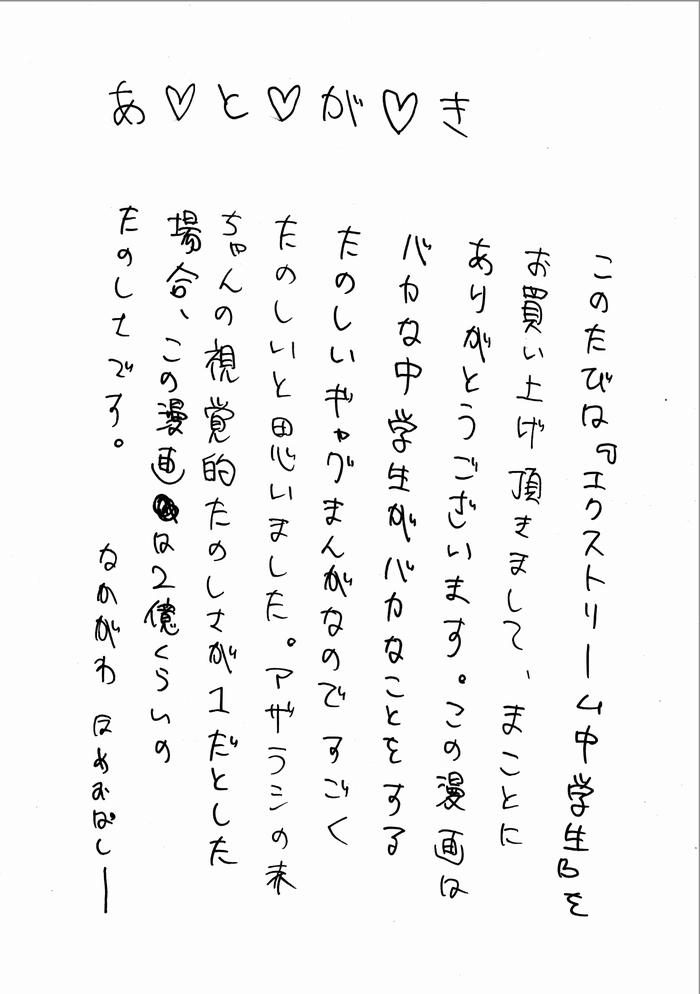 あ♡と♡が♡き
このたびは『エクストリーム中学生』を
お買い上げ頂きまして、まことに
ありがとうございます。この漫画は
バカな中学生がバカなことをする
たのしいギャグまんがなのですごく
たのしいと思いました。アザラシの赤
ちゃんの視覚的たのしさが1だとした
場合、この漫画は2億くらいの
たのしさです。
なかがわ